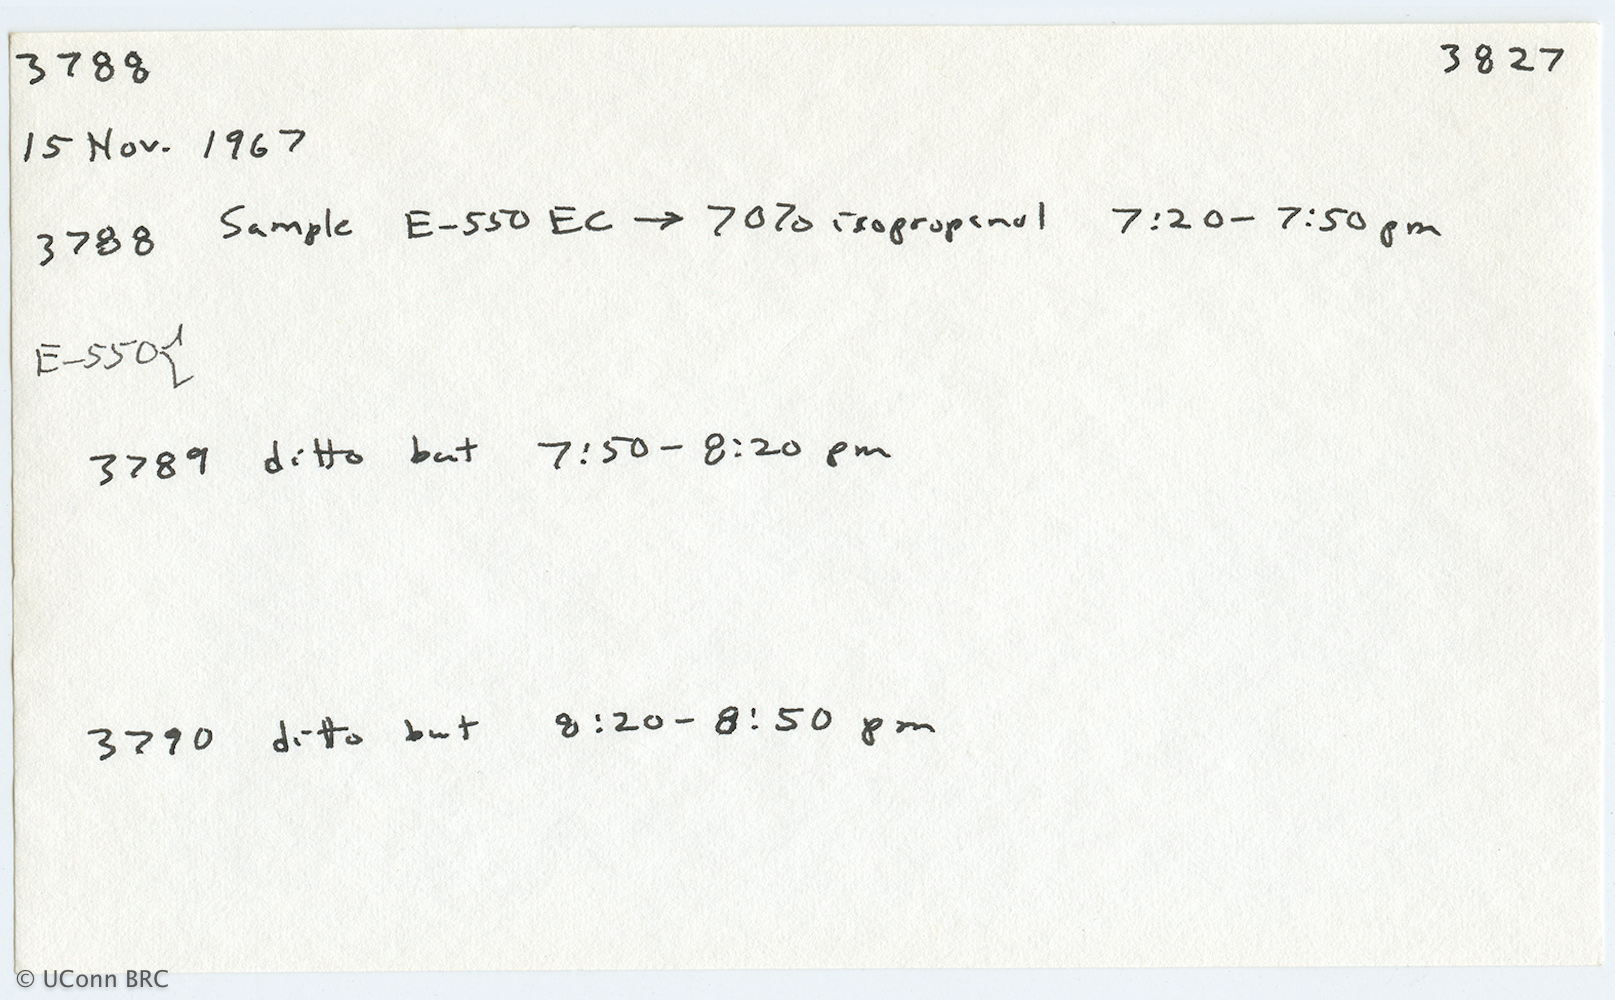 3788 3827
15 Nov. 1967
3788 Sample E-550 EC → 70% isopropanol 7:20 - 7:50 pm
E-550{
3789 ditto but 7:50 - 8:20 pm
3790 ditto but 8:20 - 8:50 pm
© UConn BRC